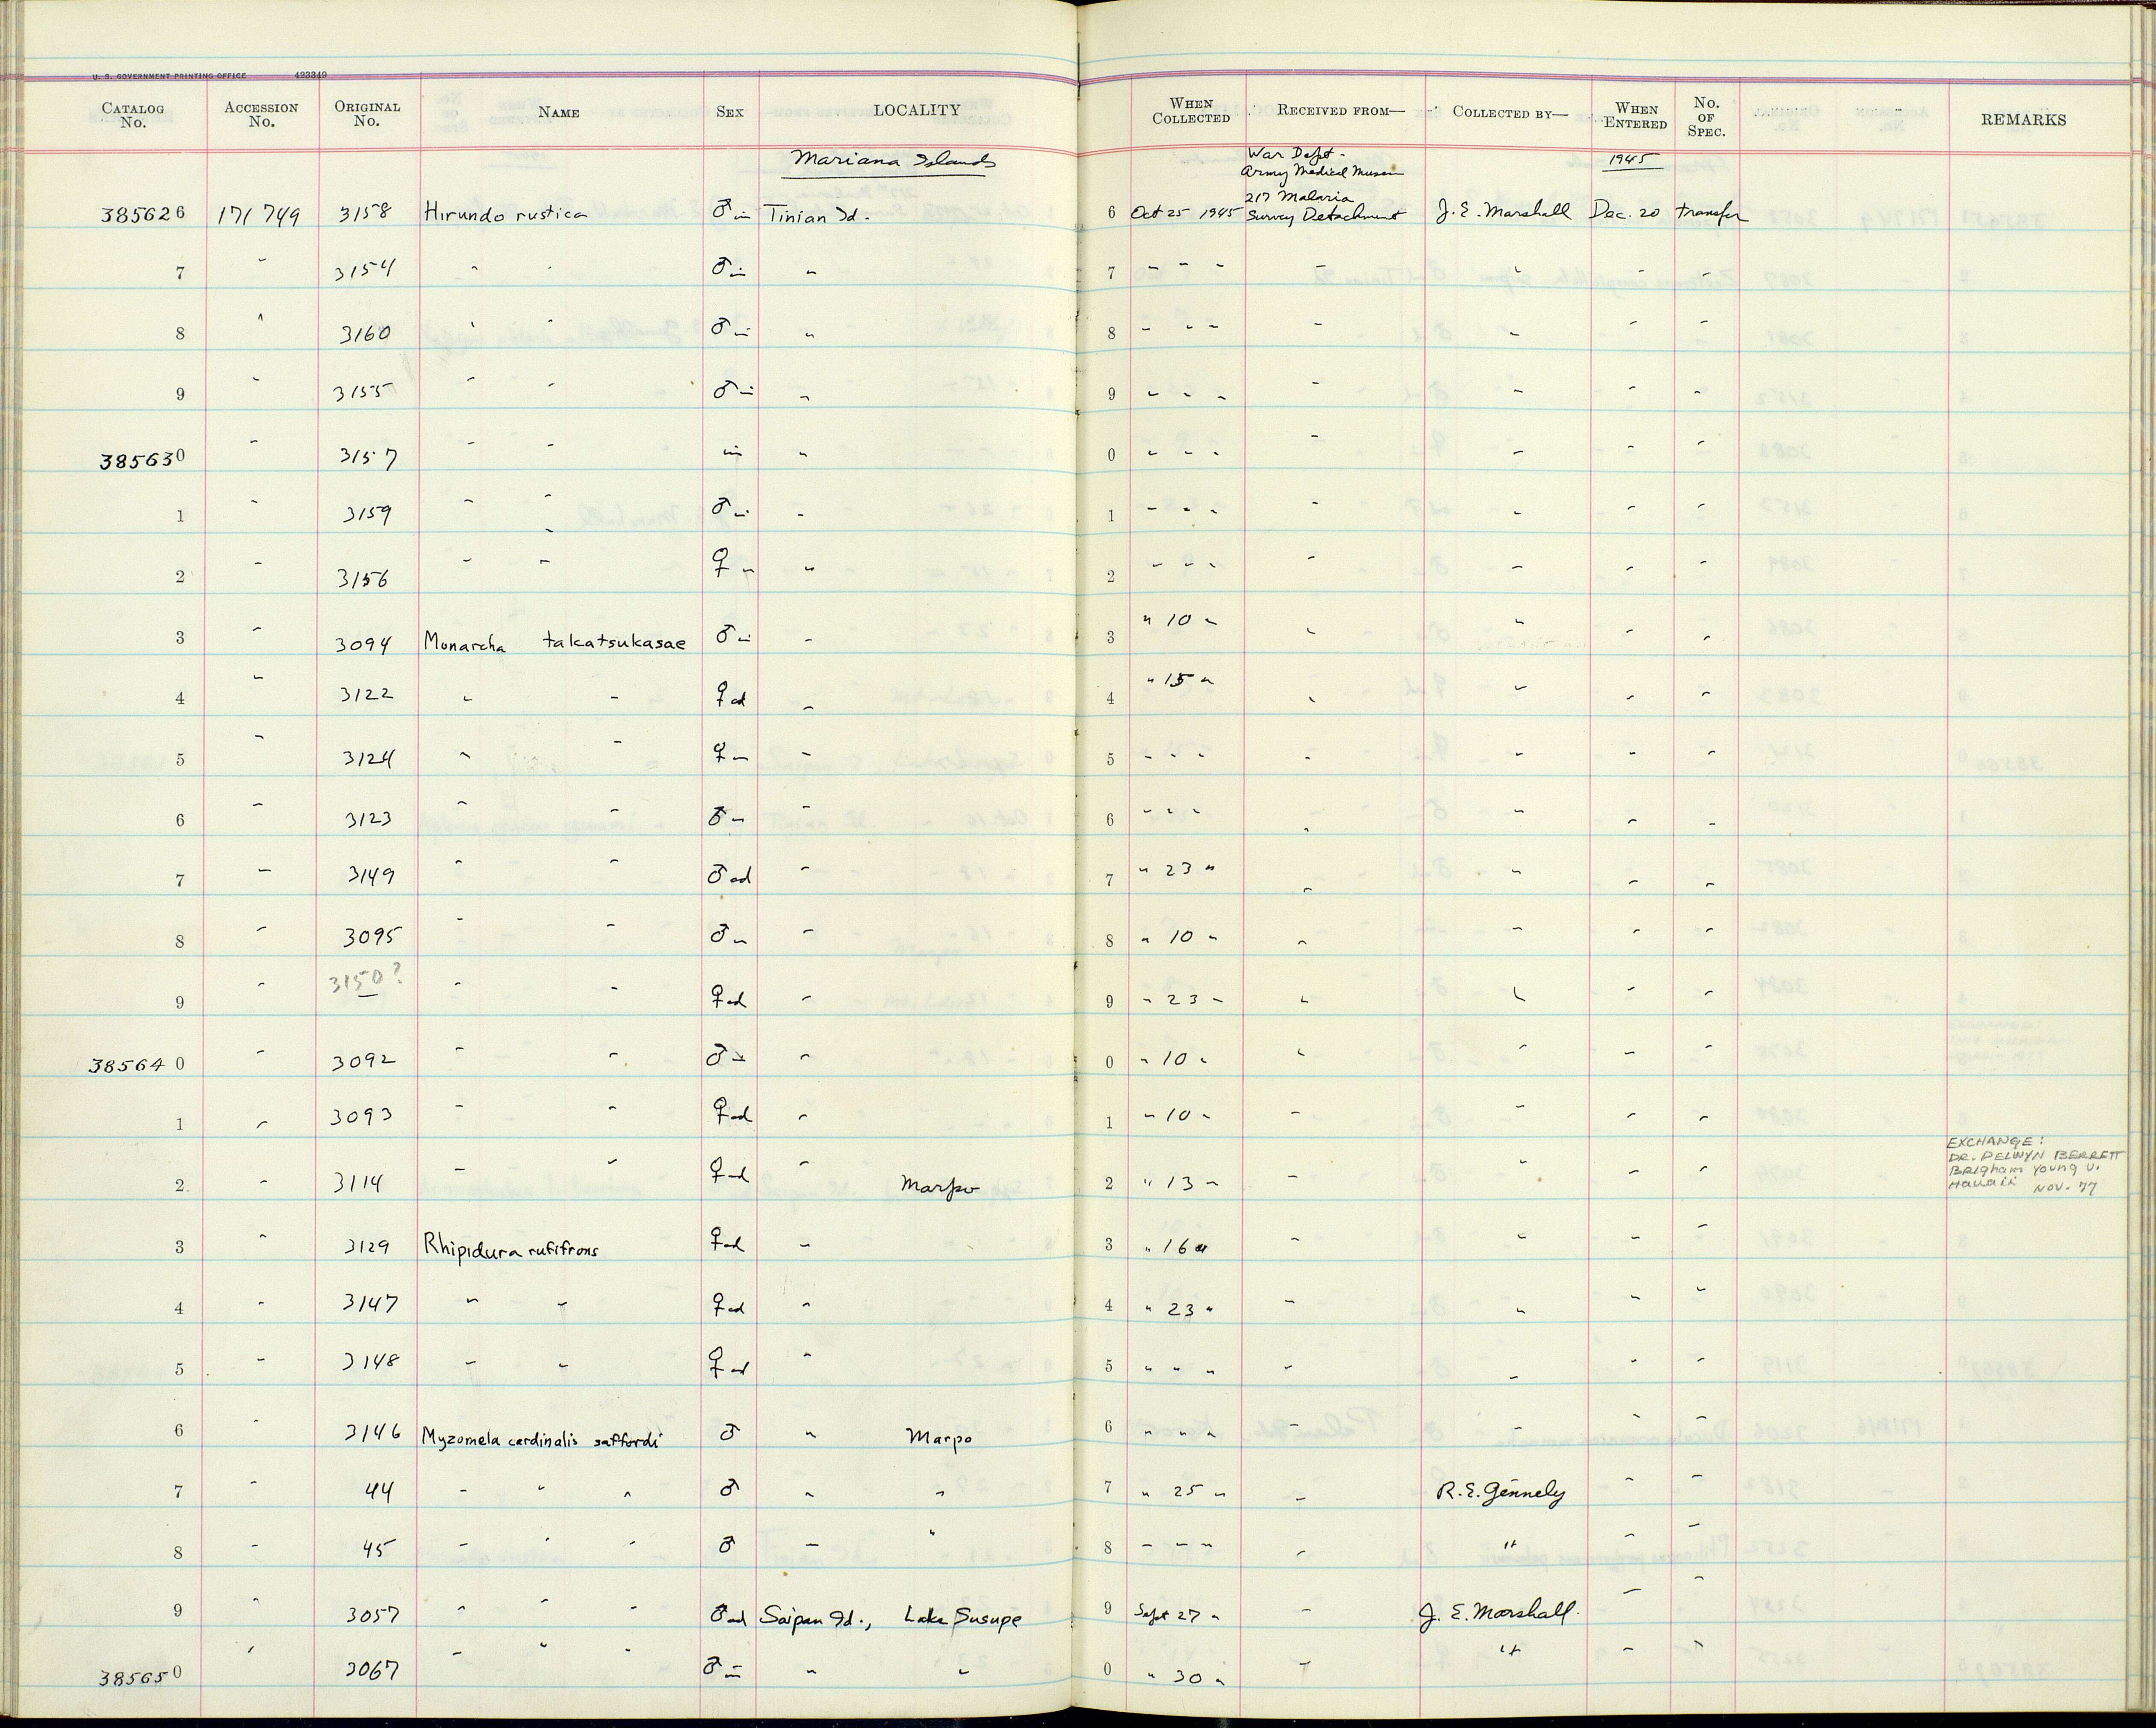 U. S. GOVERNMENT PRINTING OFFICE 493349
CATALOG No. ACCESSION No. ORIGINAL No. NAME SEX LOCALITY WHEN COLLECTED RECEIVED FROM— COLLECTED BY— WHEN ENTERED No. OF SPEC. REMARKS
Mariana Islands War Dept. Army Medical Museum 1945
385626 171749 3158 Hirundo rustica ♂ im Tinian Id. 6 Oct 25 1945 217 Malaria Survey Detachment J. E. Marshall Dec. 20 transfer
7 " 3154 " " ♂ im " 7 " " " " " " "
8 " 3160 " " ♂ im " 8 " " " " " " "
9 " 3155 " " ♂ im " 9 " " " " " " "
385630 " 3157 " " im " 0 " " " " " " "
1 " 3159 " " ♂ im " 1 " " " " " " "
2 " 3156 " " ♀ " " 2 " " " " " " "
3 " 3094 Monarcha takatsukasae ♂ im " 3 " 10 " " " " "
4 " 3122 " " ♀ ad " 4 " 15 " " " " "
5 " 3124 " " ♀ " " 5 " " " " " " "
6 " 3123 " " ♂ " " 6 " " " " " " "
7 " 3149 " " ♂ ad " 7 " 23 " " " " "
8 " 3095 " " ♂ " " 8 " 10 " " " " "
9 " 3150? " " ♀ ad " 9 " 23 " " " " "
385640 " 3092 " " ♂ " 0 " 10 " " " " "
1 " 3093 " " ♀ ad " 1 " 10 " " " " "
2 " 3114 " " ♀ ad " Marpo 2 " 13 " " " " " EXCHANGE: DR. DELWYN BERRETT Brigham Young U. Hawaii NOV. 77
3 " 3129 Rhipidura rufifrons ♀ ad " 3 " 16 " " " " "
4 " 3147 " " ♀ ad " 4 " 23 " " " " "
5 " 3148 " " ♀ ad " 5 " " " " " " "
6 " 3146 Myzomela cardinalis saffordi ♂ " Marpo 6 " " " " " " "
7 " 44 " " " ♂ " " 7 " 25 " " R. E. Gennely " "
8 " 45 " " " ♂ " " 8 " " " " " " "
9 " 3057 " " " ♂ ad Saipan Id., Lake Susupe 9 Sept 27 " " J. E. Marshall. " "
385650 " 3067 " " " ♂ im " " 0 " 30 " " " " "